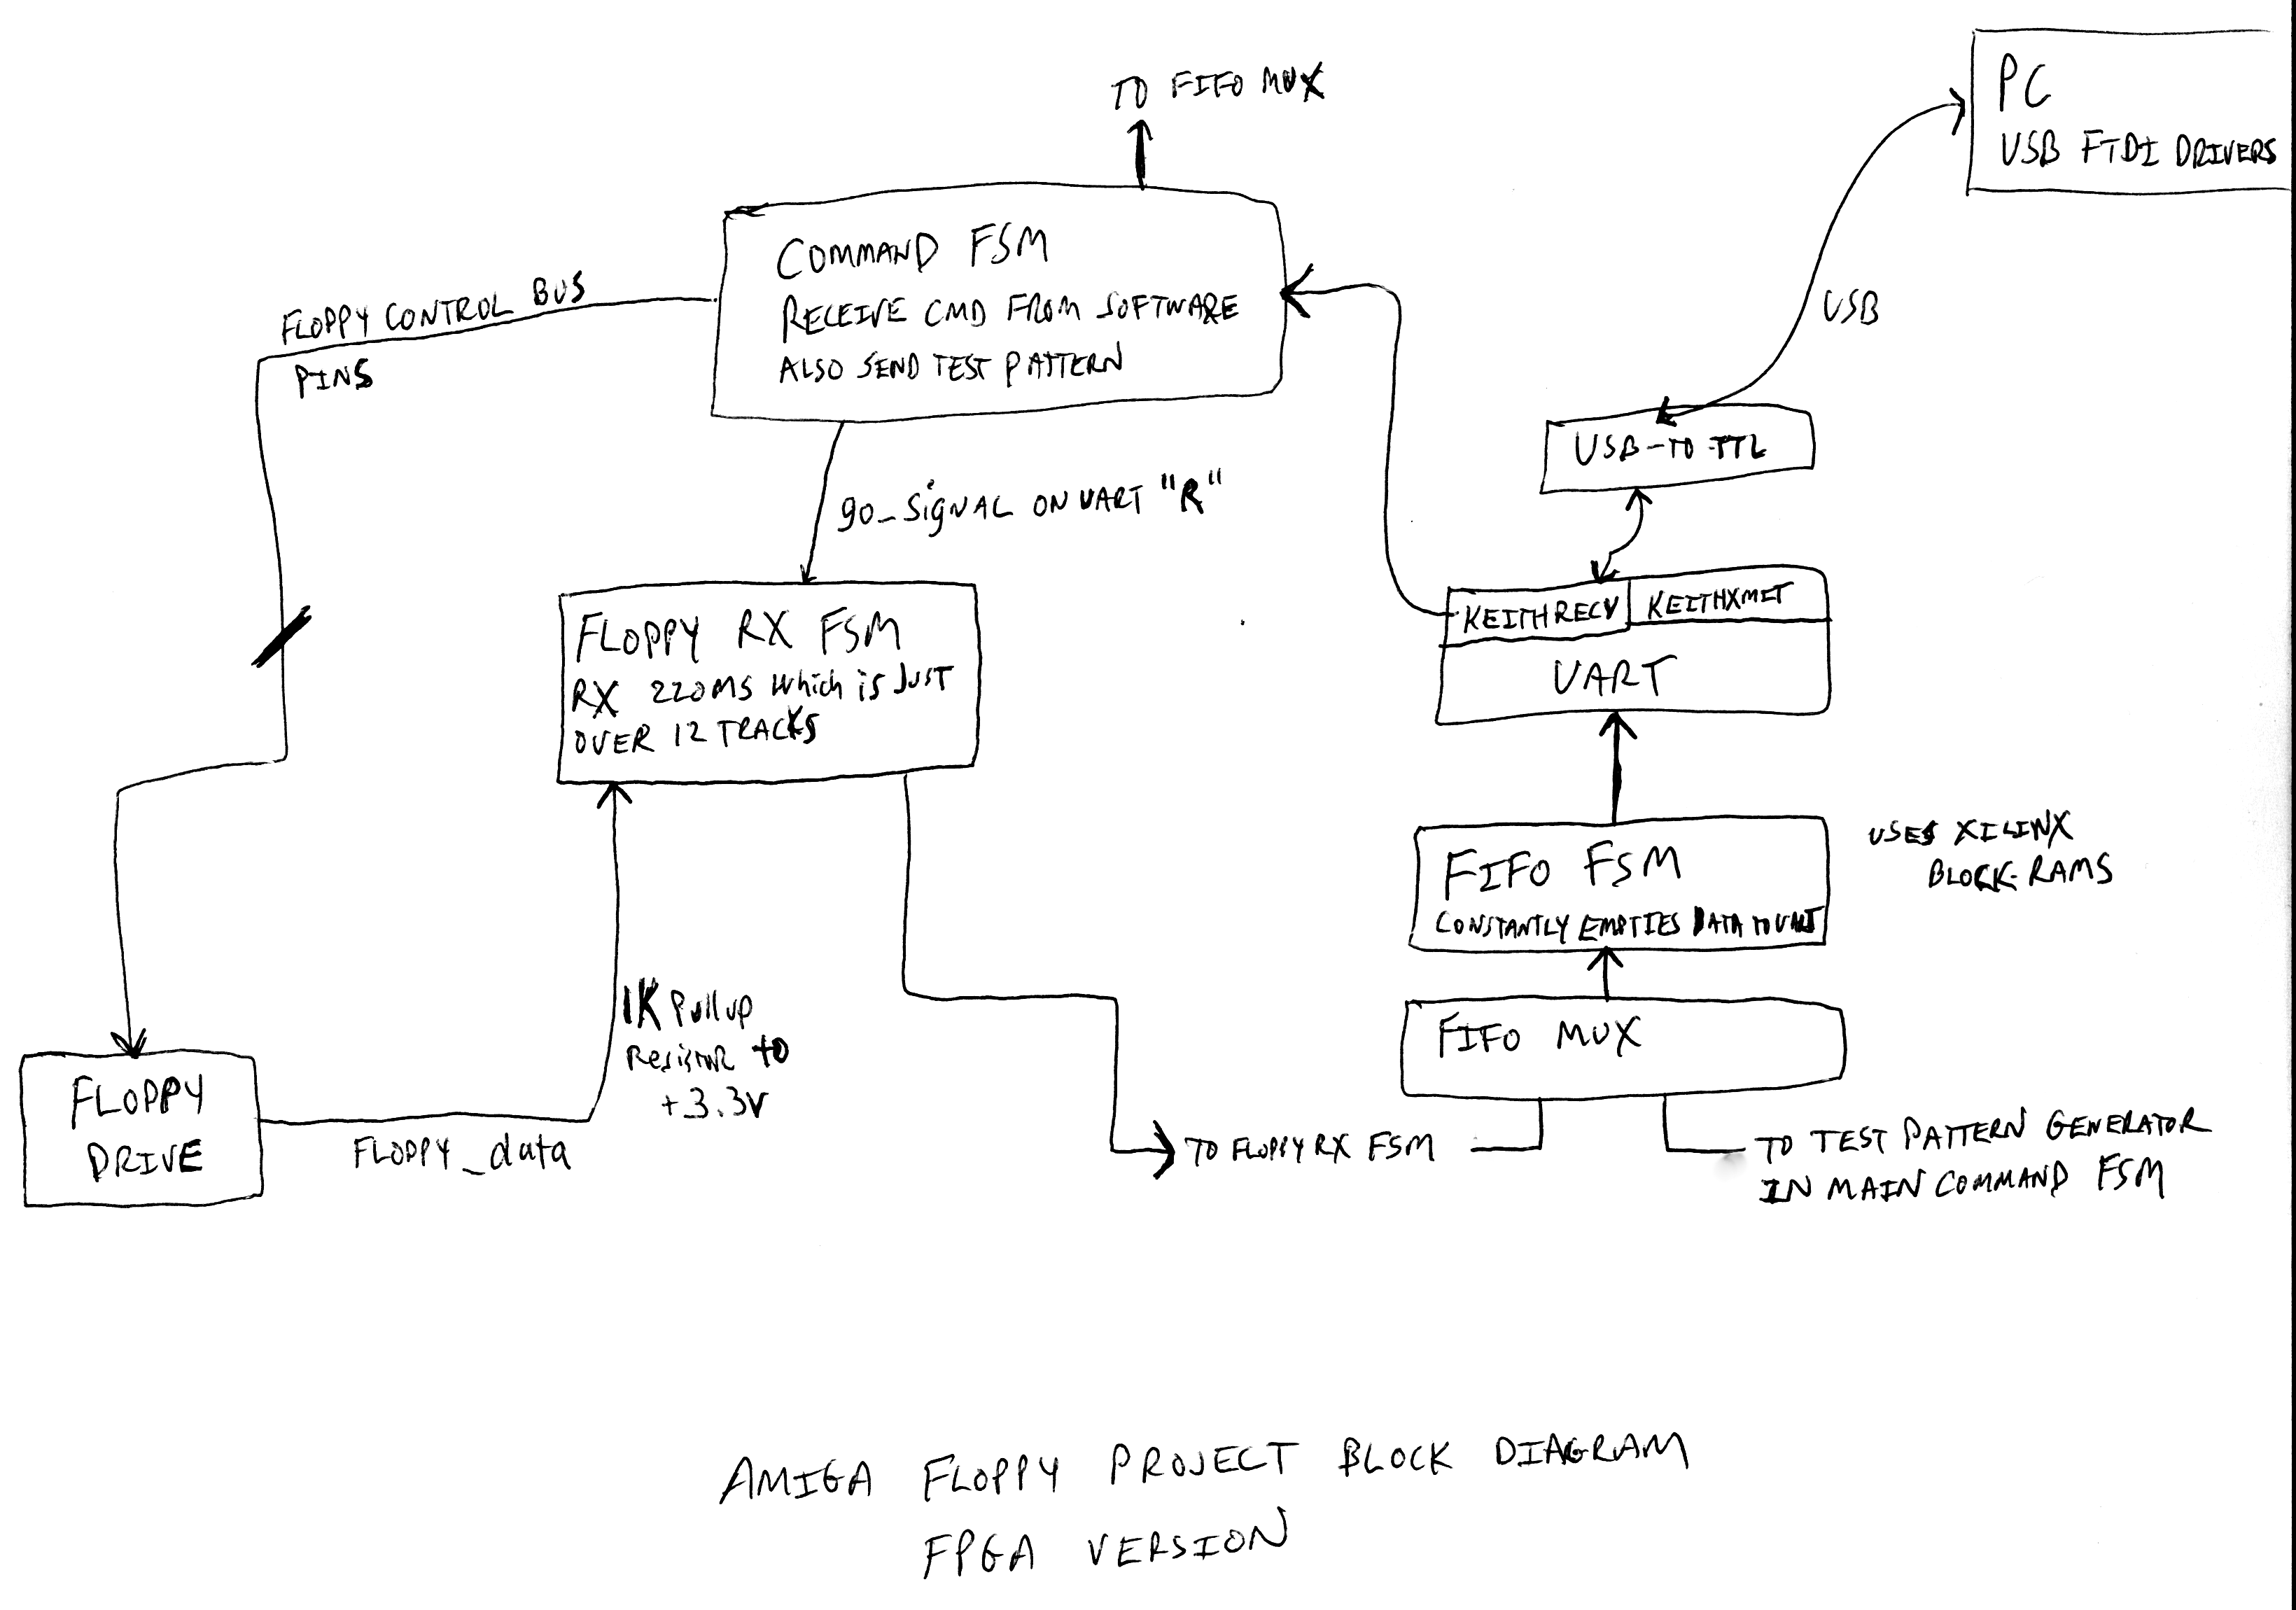 TO FIFO MUX
PC
USB FTDI DRIVERS
COMMAND FSM
RECEIVE CMD FROM SOFTWARE
ALSO SEND TEST PATTERN
FLOPPY CONTROL BUS
PINS
USB
USB-TO-TTL
go_signal ON UART "R"
KEITHRECV
KEITHXMIT
UART
FLOPPY RX FSM
RX 220MS which is JUST
OVER 12 TRACKS
FIFO FSM
CONSTANTLY EMPTIES DATA TO UART
USES XILINX
BLOCK-RAMS
1K Pullup
Resistor to
+3.3V
FIFO MUX
FLOPPY
DRIVE
FLOPPY_data
TO FLOPPY RX FSM
TO TEST PATTERN GENERATOR
IN MAIN COMMAND FSM
AMIGA FLOPPY PROJECT BLOCK DIAGRAM
FPGA VERSION